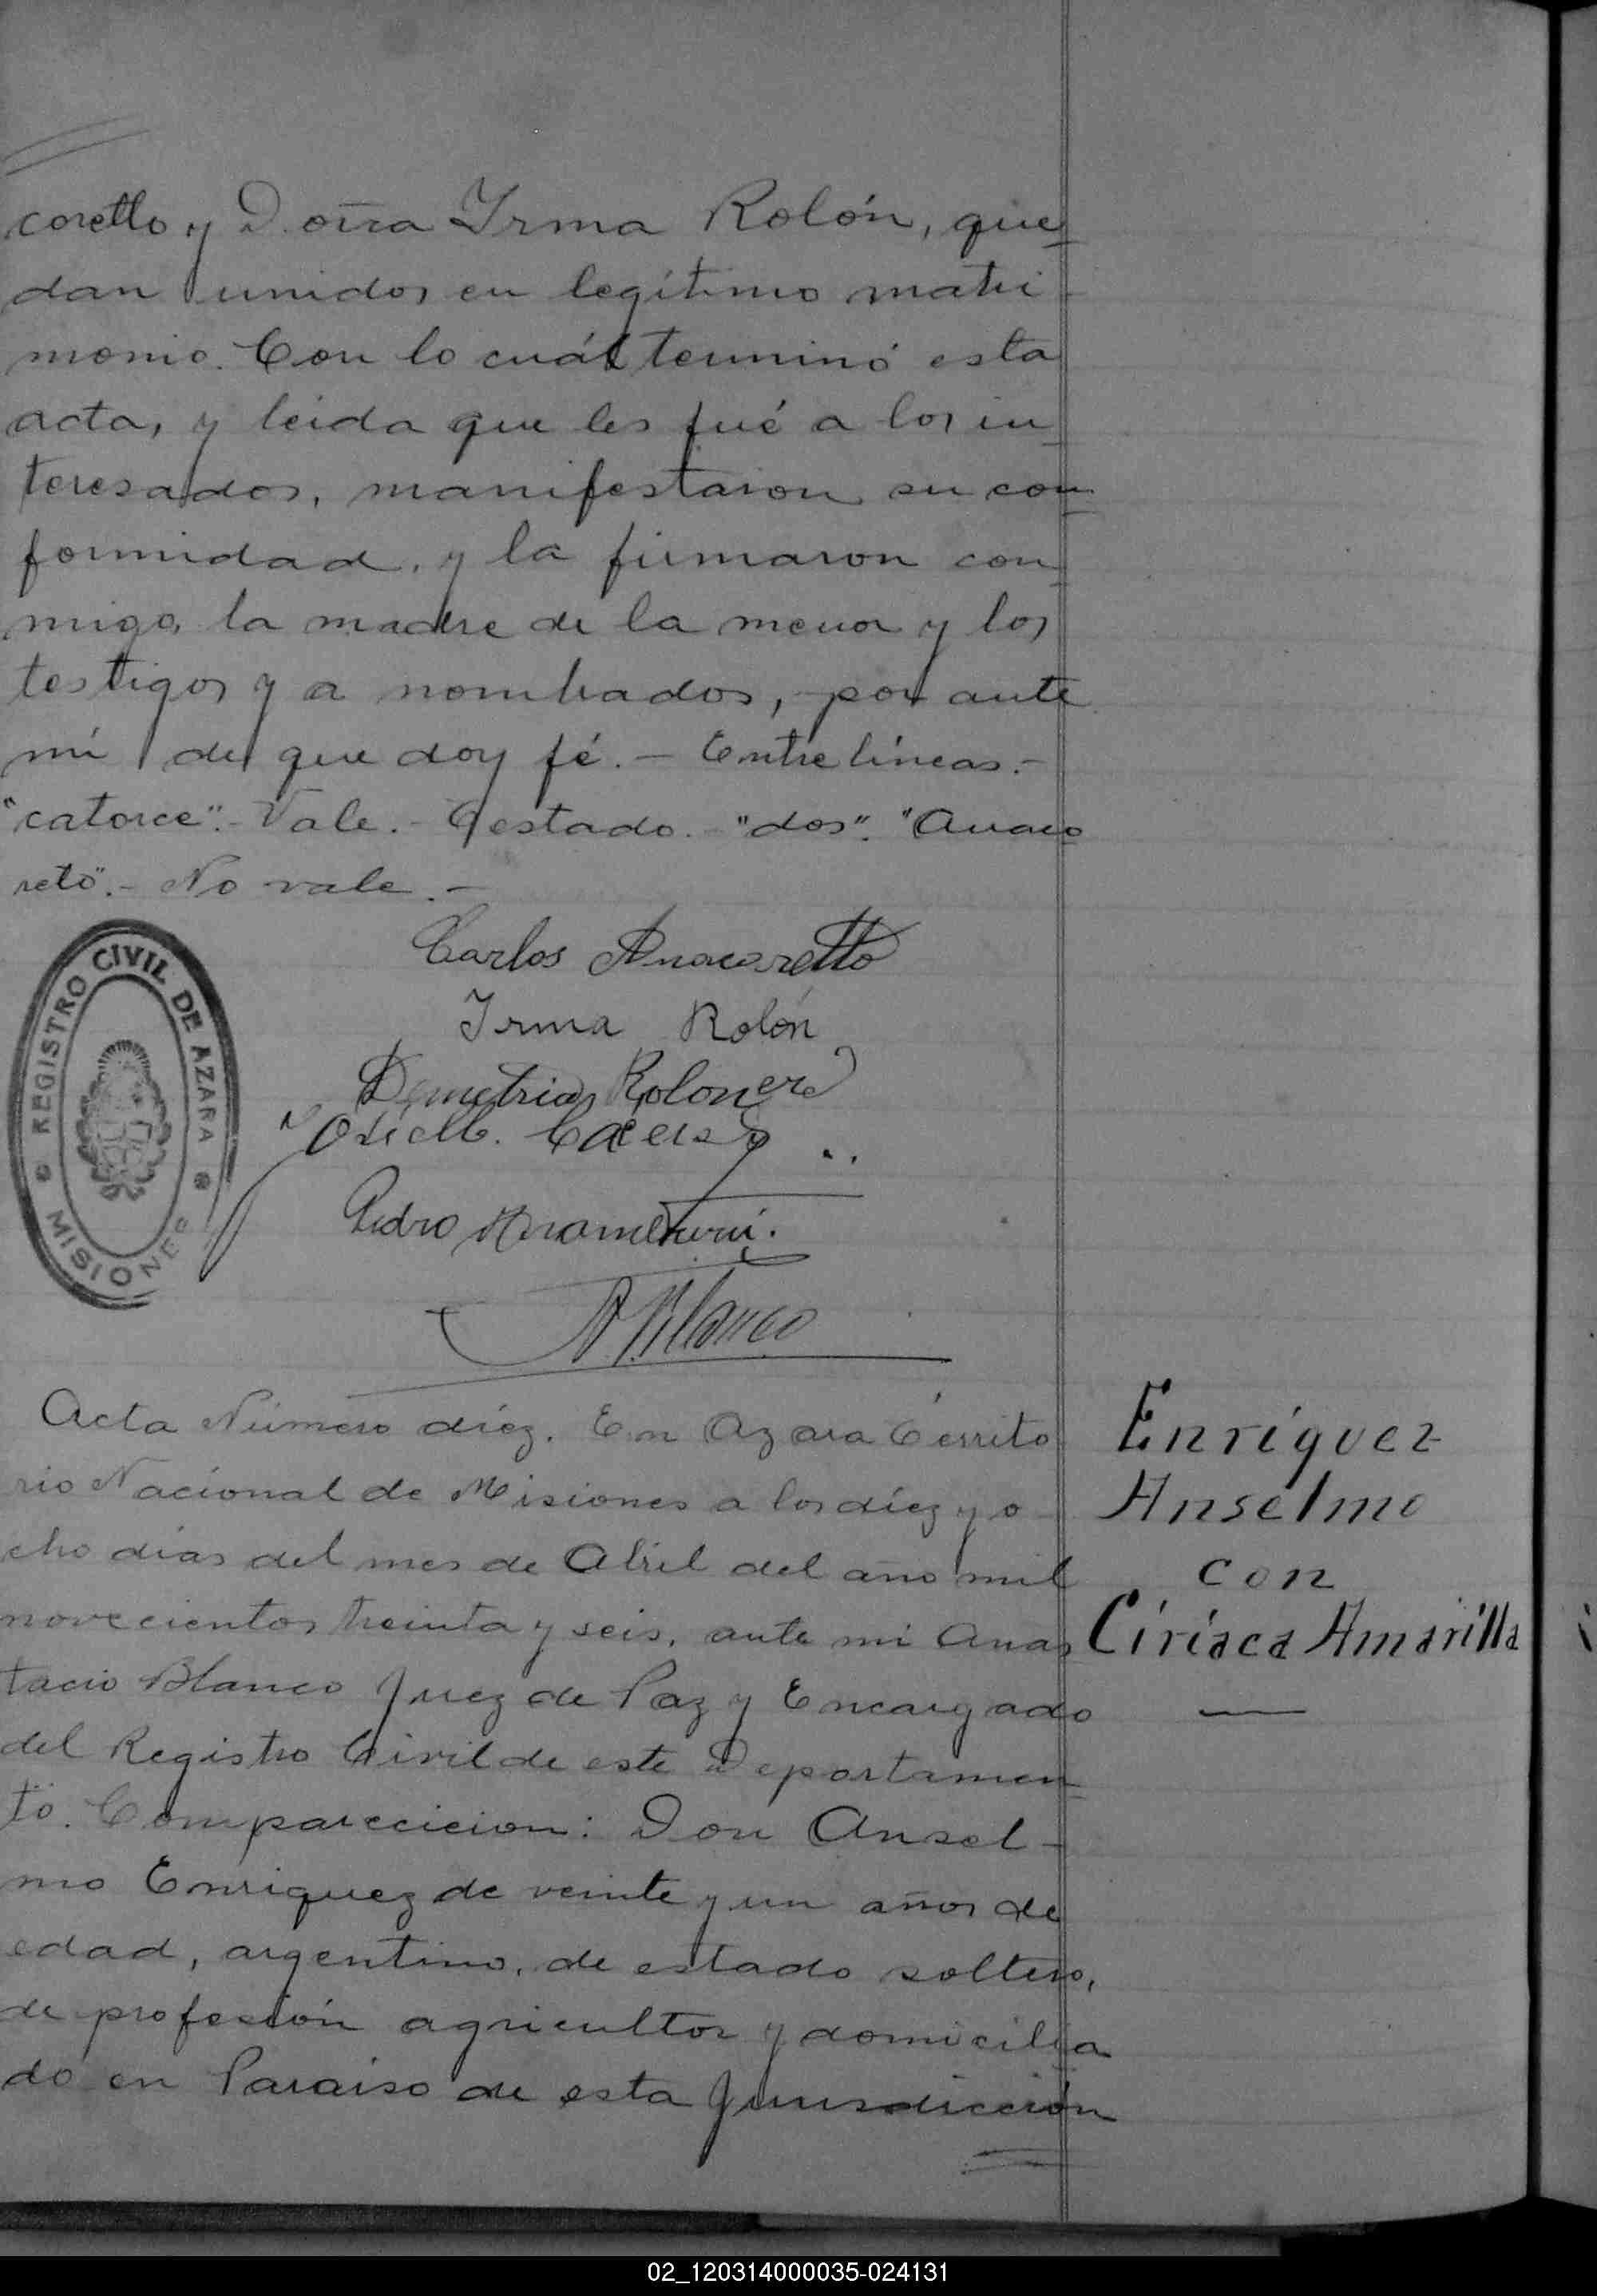 coretto y Doña Irma Rolón, que
dan unidos en legítimo matri
monio. Con lo cuál terminó esta
acta, y leida que les fué a los in
teresados, manifestaron su con
formidad, y la firmaron con
migo, la madre de la menor y los
testigos ya nombrados, por ante
mí de que doy fé. — Entre líneas.-
"catorce".- Vale.- Testado.- "dos". "Anaco
reto".- No vale.-
Carlos Anacoretto
Irma Rolón
Demetria Rolon
Pedro
A Blanco
REGISTRO CIVIL DE AZARA
MISIONES
Acta Número diez. En Azara Territo
rio Nacional de Misiones a los diez y o
cho dias del mes de Abril del año mil
novecientos treinta y seis, ante mi Anas
tacio Blanco Juez de Paz y Encargado
del Registro Civil de este Departamen
to. Comparecicion: Don Ansel-
mo Enriquez de veinte y un años de
edad, argentino, de estado soltero,
de profesión agricultor y domicilia
do en Paraiso de esta Jurisdicción
Enríquez
Anselmo
con
Ciríaca Amarilla
02_120314000035-024131